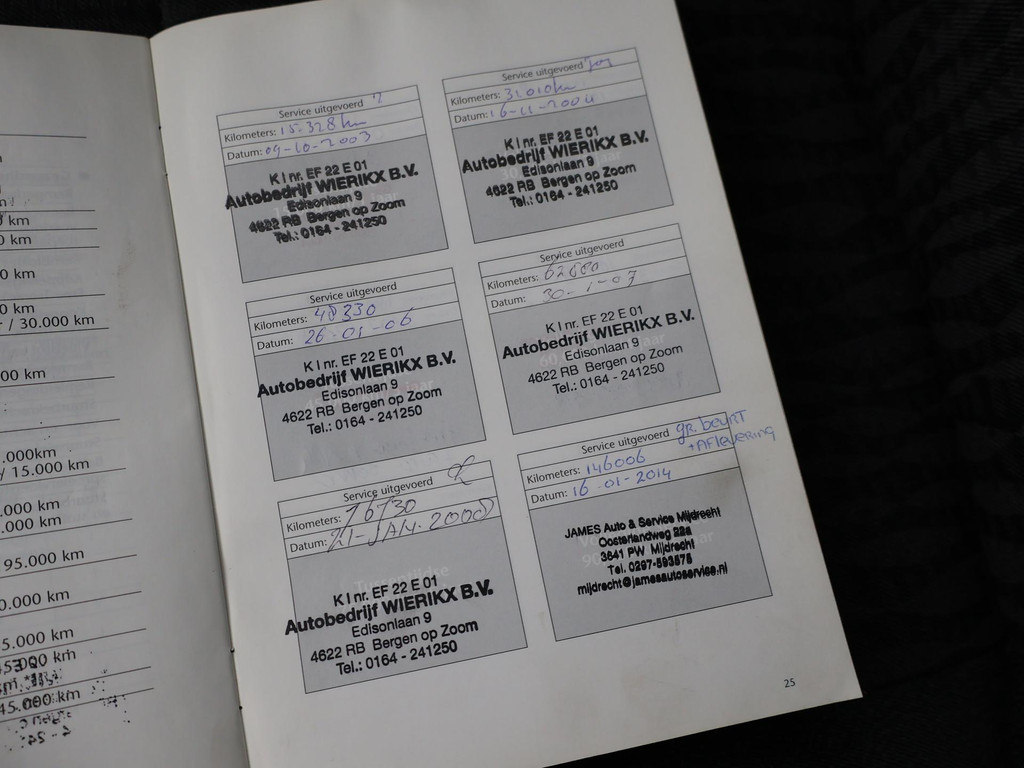 km
km
0 km
0 km
/ 30.000 km
00 km
.000km
/ 15.000 km
.000 km
.000 km
95.000 km
0.000 km
5.000 km
45.000 km
Service uitgevoerd
Kilometers: 15.328 km
Datum: 09-10-2003
K I nr. EF 22 E 01
Autobedrijf WIERIKX B.V.
Edisonlaan 9
4622 RB Bergen op Zoom
Tel.: 0164 - 241250
Service uitgevoerd
Kilometers: 31010 km
Datum: 16-11-2004
K I nr. EF 22 E 01
Autobedrijf WIERIKX B.V.
Edisonlaan 9
4622 RB Bergen op Zoom
Tel.: 0164 - 241250
Service uitgevoerd
Kilometers: 48330
Datum: 26-01-06
K I nr. EF 22 E 01
Autobedrijf WIERIKX B.V.
Edisonlaan 9
4622 RB Bergen op Zoom
Tel.: 0164 - 241250
Service uitgevoerd
Kilometers:
Datum: 30-1-07
K I nr. EF 22 E 01
Autobedrijf WIERIKX B.V.
Edisonlaan 9
4622 RB Bergen op Zoom
Tel.: 0164 - 241250
Service uitgevoerd
Kilometers: 76730
Datum: 21-JAN-2008
K I nr. EF 22 E 01
Autobedrijf WIERIKX B.V.
Edisonlaan 9
4622 RB Bergen op Zoom
Tel.: 0164 - 241250
Service uitgevoerd gr. beurt
+ Aflevering
Kilometers: 146006
Datum: 16-01-2014
JAMES Auto & Service Mijdrecht
Oosterlandweg
3641 PW Mijdrecht
Tel. 0297-593875
mijdrecht@jamesautoservice.nl
25